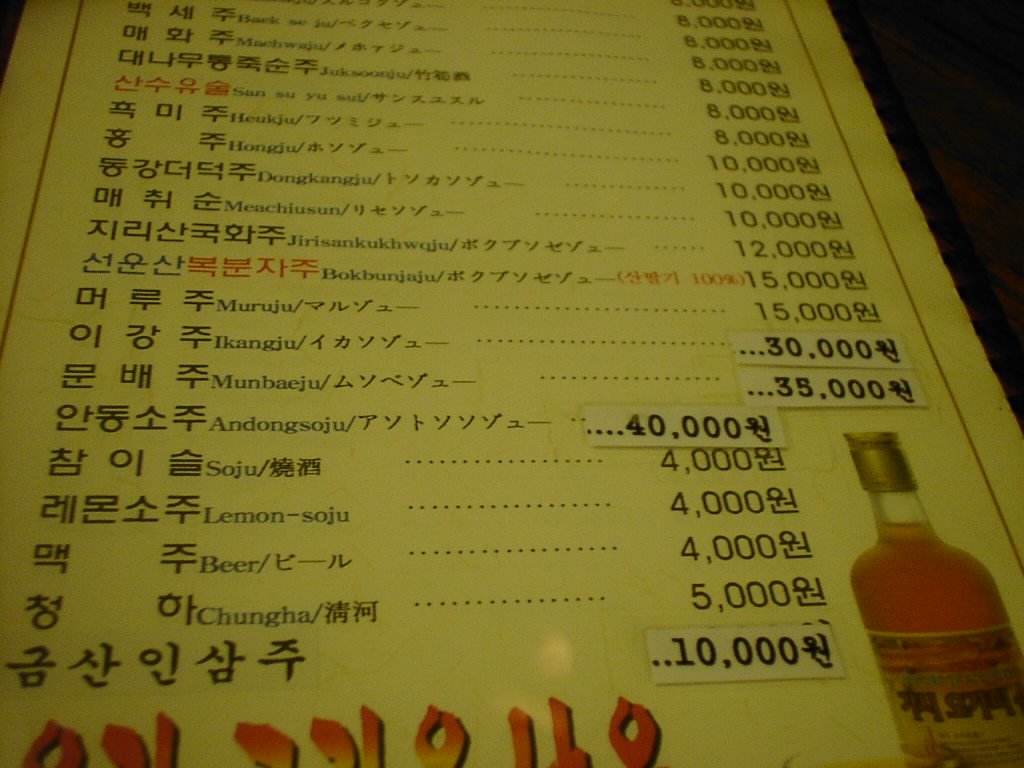 8,000원
8,000원
백 세 주 Baek se ju/ペクセゾュー ........ 8,000원
매 화 주 Maehwaju/メホアジュー ........ 8,000원
대나무통죽순주 Juksoonju/竹筍酒 ........ 8,000원
산수유술 San su yu sul/サンスユスル ........ 8,000원
흑 미 주 Heukju/フツミジュー ........ 8,000원
홍 주 Hongju/ホソゾュー ........ 10,000원
동강더덕주 Dongkangju/トソカソゾュー ........ 10,000원
매 취 순 Meachiusun/リセソゾュー ........ 10,000원
지리산국화주 Jirisankukhwqju/ボクブソセゾュー ...... 12,000원
선운산복분자주 Bokbunjaju/ボクブソセゾュー (산딸기 100%) 15,000원
머 루 주 Muruju/マルゾュー ........ 15,000원
이 강 주 Ikangju/イカソゾュー ........ ...30,000원
문 배 주 Munbaeju/ムソベゾュー ........ ...35,000원
안동소주 Andongsoju/アソトソソゾュー ......40,000원
참 이 슬 Soju/燒酒 ........ 4,000원
레몬소주 Lemon-soju ........ 4,000원
맥 주 Beer/ビール ........ 4,000원
청 하 Chungha/淸河 ........ 5,000원
금산인삼주 ..10,000원